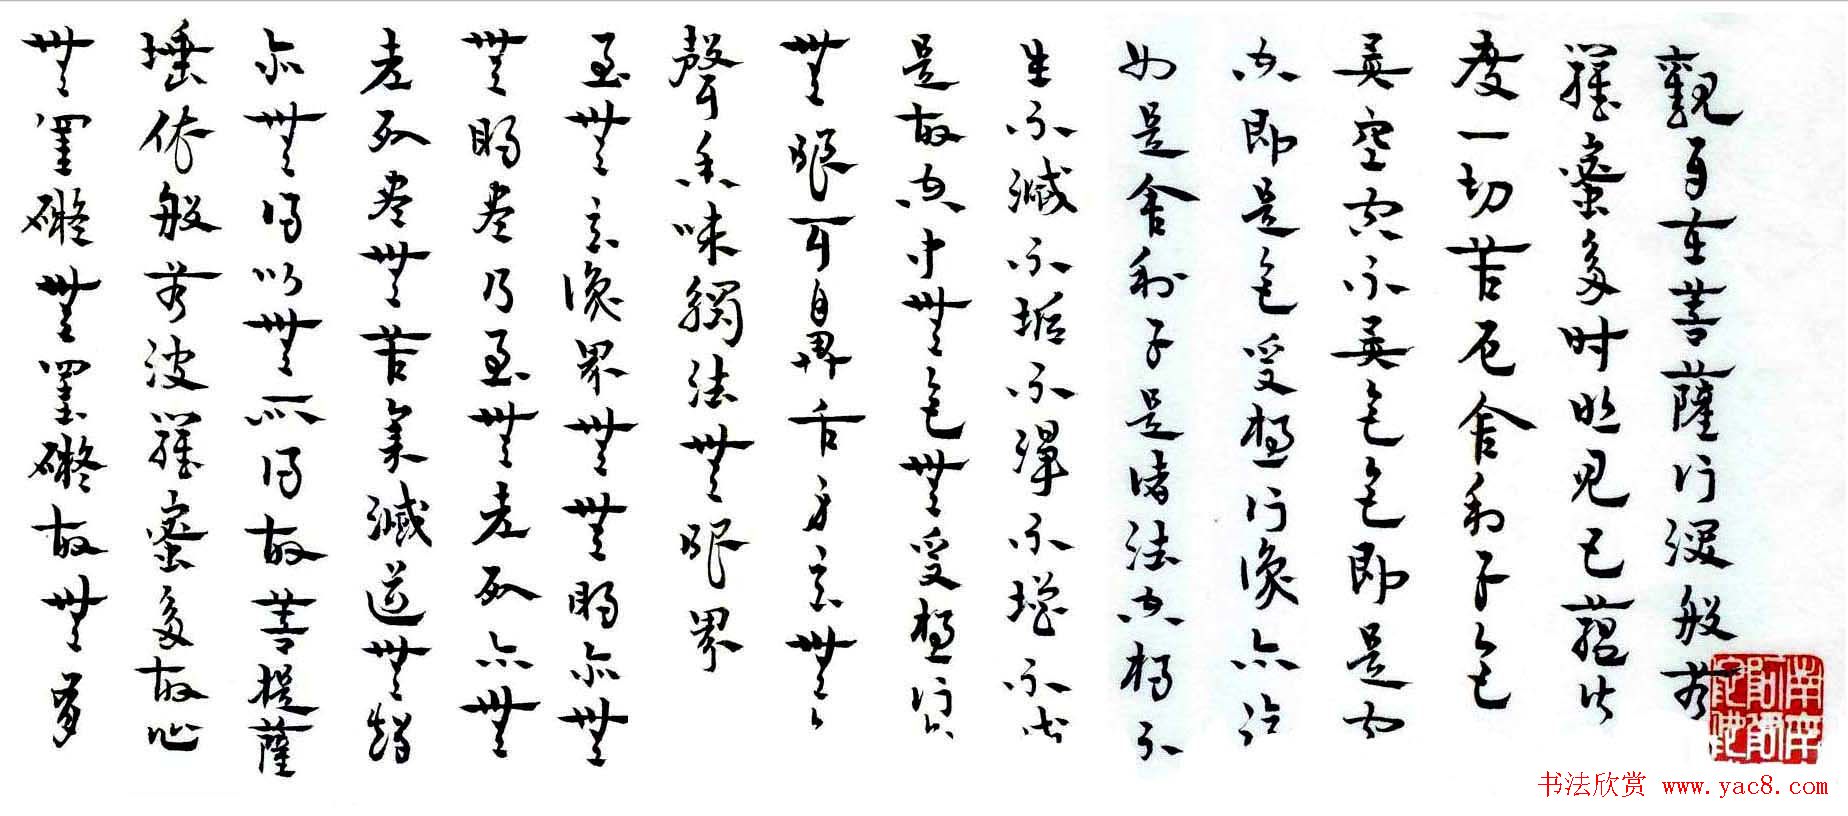 觀自在菩薩行深般若
羅蜜多時照見五蘊皆
度一切苦厄舍利子色
異空空不異色色即是空
空即是色受想行識亦復
如是舍利子是諸法空相不
生不滅不垢不淨不增不減
是故空中無色無受想行
無眼耳鼻舌身意無
聲香味觸法無眼界
至無意識界無無明亦無
無明盡乃至無老死亦無
老死盡無苦集滅道無智
亦無得以無所得故菩提薩
埵依般若波羅蜜多故心
無罣礙無罣礙故無有
书法欣赏 www.yac8.com